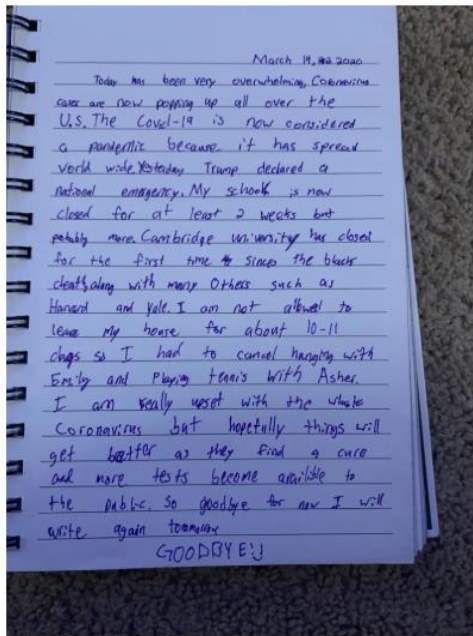 March 14, 2020
Today has been very overwhelming, Coronavirus
cases are now popping up all over the
U.S. The Covid-19 is now considered
a pandemic because it has spread
world wide. Yesterday Trump declared a
national emergency. My school is now
closed for at least 2 weeks but
potably more. Cambridge university has closed
for the first time since the black
death, along with many Others such as
Harvard and Yale. I am not allowed to
leave my house for about 10-11
days so I had to cancel hanging with
Emily and Playing tennis with Asher.
I am really upset with the whole
Coronavirus but hopefully things will
get better as they find a cure
and more tests become availible to
the public. So goodbye for now I will
write again tomorrow
GOODBYE!!